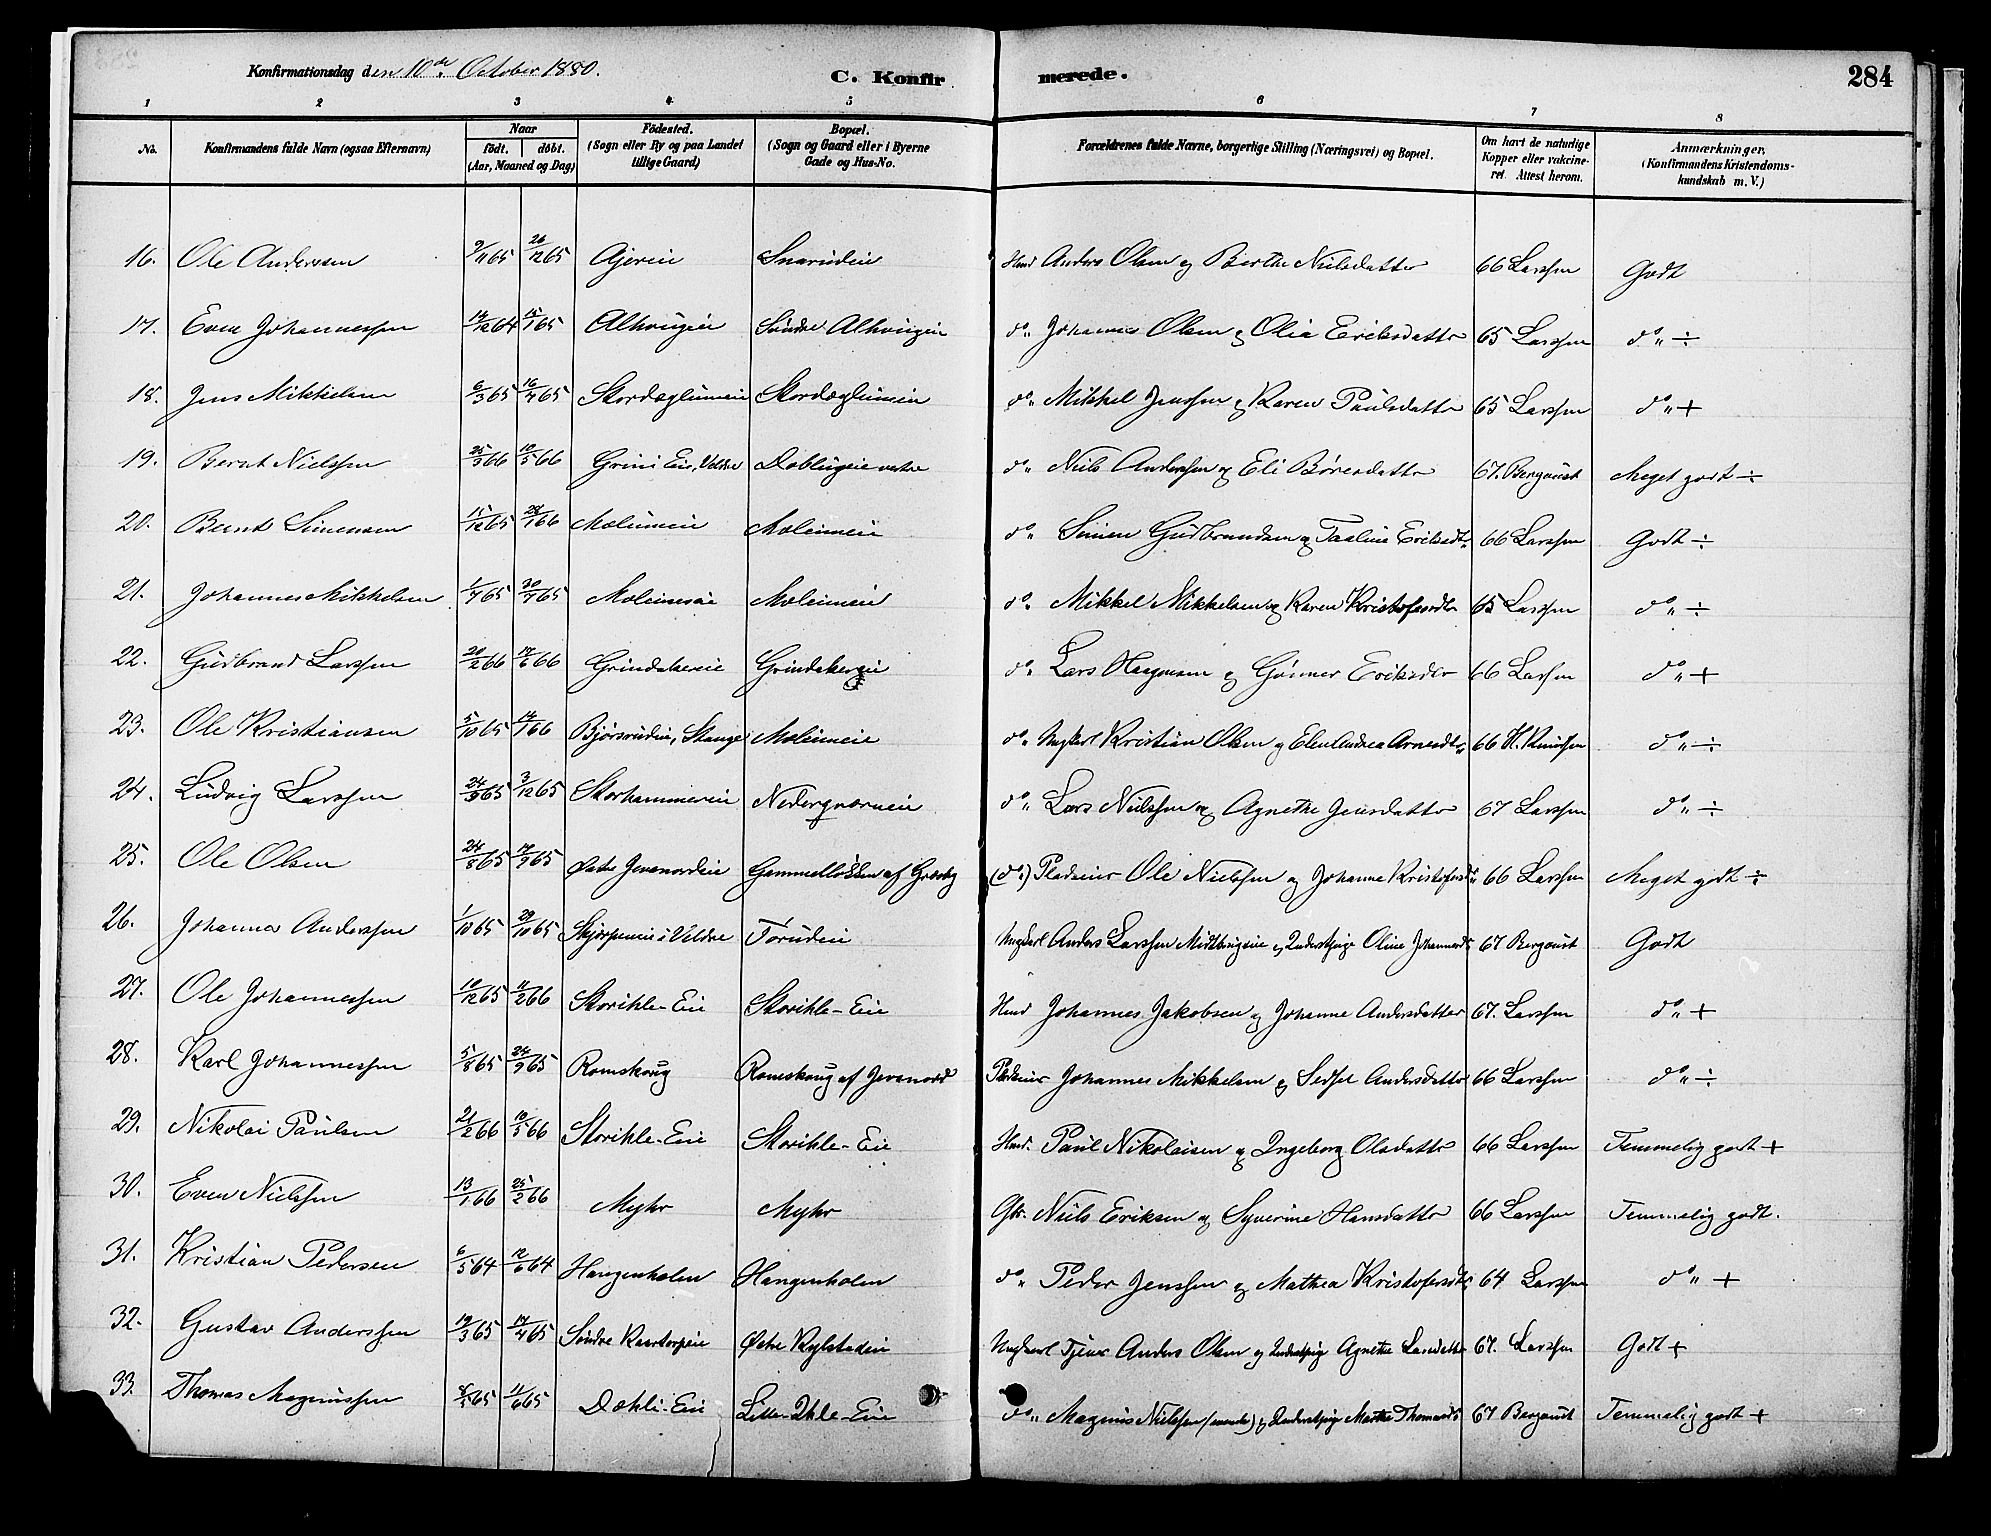 Konfirmationsdag den 10de October 1880.
C. Konfirmerede.
284
1 2 3 4 5 6 7 8
No. Konfirmandens fulde Navn (ogsaa Efternavn) Naar födt. döbt. (Aar, Maaned og Dag) Födested. (Sogn eller By og paa Landet tillige Gaard) Bopæl. (Sogn og Gaard eller i Byerne Gade og Hus-No. Forældrenes fulde Navne, borgerlige Stilling (Næringsvei) og Bopæl. Om havt de naturlige Kopper eller vakcineret. Attest herom. Anmærkninger. (Konfirmandens Kristendomskundskab m. V.)
16. Ole Anderssen 9/11 65 26/12 65 Ajereie Snarudeie Hmd Anders Olsen og Berthe Nielsdatter 66 Larssen Godt
17. Even Johannessen 14/12 64 15/1 65 Alhaugeie Søndre Alhaugeie do. Johannes Olsen og Olia Eriksdatter 65 Larssen do. ÷
18. Jens Mikkelsen 6/3 65 16/4 65 Skordaglumeie Skordaglumeie do. Mikkel Jenssen og Karen Paulsdatter 65 Larssen do. +
19. Bernt Nielssen 25/3 66 10/5 66 Grini Eie, Veldre Doblugeie vestre do. Niels Anderssen og Eli Børesdatter 67. Bergqust Meget godt ÷
20. Bernt Simensen 15/12 65 28/1 66 Mæleimeie Mæleimeie do. Simen Gudbrandsen og Taaline Eriksdtr 66 Larssen Godt ÷
21. Johannes Mikkelsen 1/7 65 30/7 65 Mæleimeie Mæleimeie do. Mikkel Mikkelsen og Karen Kristofersdtr 65 Larssen do. ÷
22. Gudbrand Larssen 20/2 66 17/6 66 Grindakereie Grindakereie do. Lars Haagensen og Gunner Eriksdtr 66 Larssen do. +
23. Ole Kristiansen 5/10 65 14/1 66 Bjørsrudeie, Stange Mæleimeie do. Ungkarl Kristian Olsen og Elen Andrea Arnesdtr 66 H. Knudsen do. ÷
24. Ludvig Larssen 24/9 65 3/12 65 Storhammereie Nederqværneie do. Lars Nielssen og Agnethe Jensdatter 67 Larssen do. ÷
25. Ole Olsen 24/8 65 17/9 65 Østre Jevanordeie Gammelløkken af Græsby (do.) Pladseier Ole Nielssen og Johanne Kristofersdtr 66 Larssen Meget godt ÷
26. Johannes Anderssen 1/10 65 29/10 65 Skjørpeneie i Veldre Torudeie Ungkarl Anders Larssen Midtbrugeie og Inderstpige Oline Johannesdtr 67 Bergqust Godt
27. Ole Johannessen 10/12 65 11/2 66 Storihle-Eie Storihle-Eie Hmd Johannes Jakobsen og Johanne Andersdatter 67. Larssen do. +
28. Karl Johannessen 5/8 65 24/9 65 Romskoug Romskoug af Jevanord Pladseier Johannes Mikkelsen og Sedsel Andersdatter 66 Larssen do. ÷
29. Nikolai Paulsen 21/2 66 10/5 66 Storihle-Eie Storihle-Eie Hmd. Paul Nikolaisen og Ingeborg Olsdatter 66 Larssen Temmelig godt +
30. Even Nielssen 13/1 66 25/2 66 Myhr Myhr Gbr. Niels Eriksen og Syverine Hansdatter 66 Larssen Temmelig godt.
31. Kristian Pedersen 6/5 64 12/6 64 Hangenholen Hangenholen do. Peder Jenssen og Mathea Kristofersdtr 64 Larssen do. +
32. Gustav Anderssen 19/3 65 17/4 65 Søndre Kaartorpeie Østre Kylstadeie Ungkarl Tjener Anders Olsen og Inderstpige Agnethe Larsdatter 67. Larssen Godt +
33. Thomas Magnussen 8/5 65 11/6 65 Dæhli-Eie Lille-Ihle-Eie do. Magnus Nielssen og Inderstpige Marthe Thomasdtr 67 Bergqust Temmelig godt +